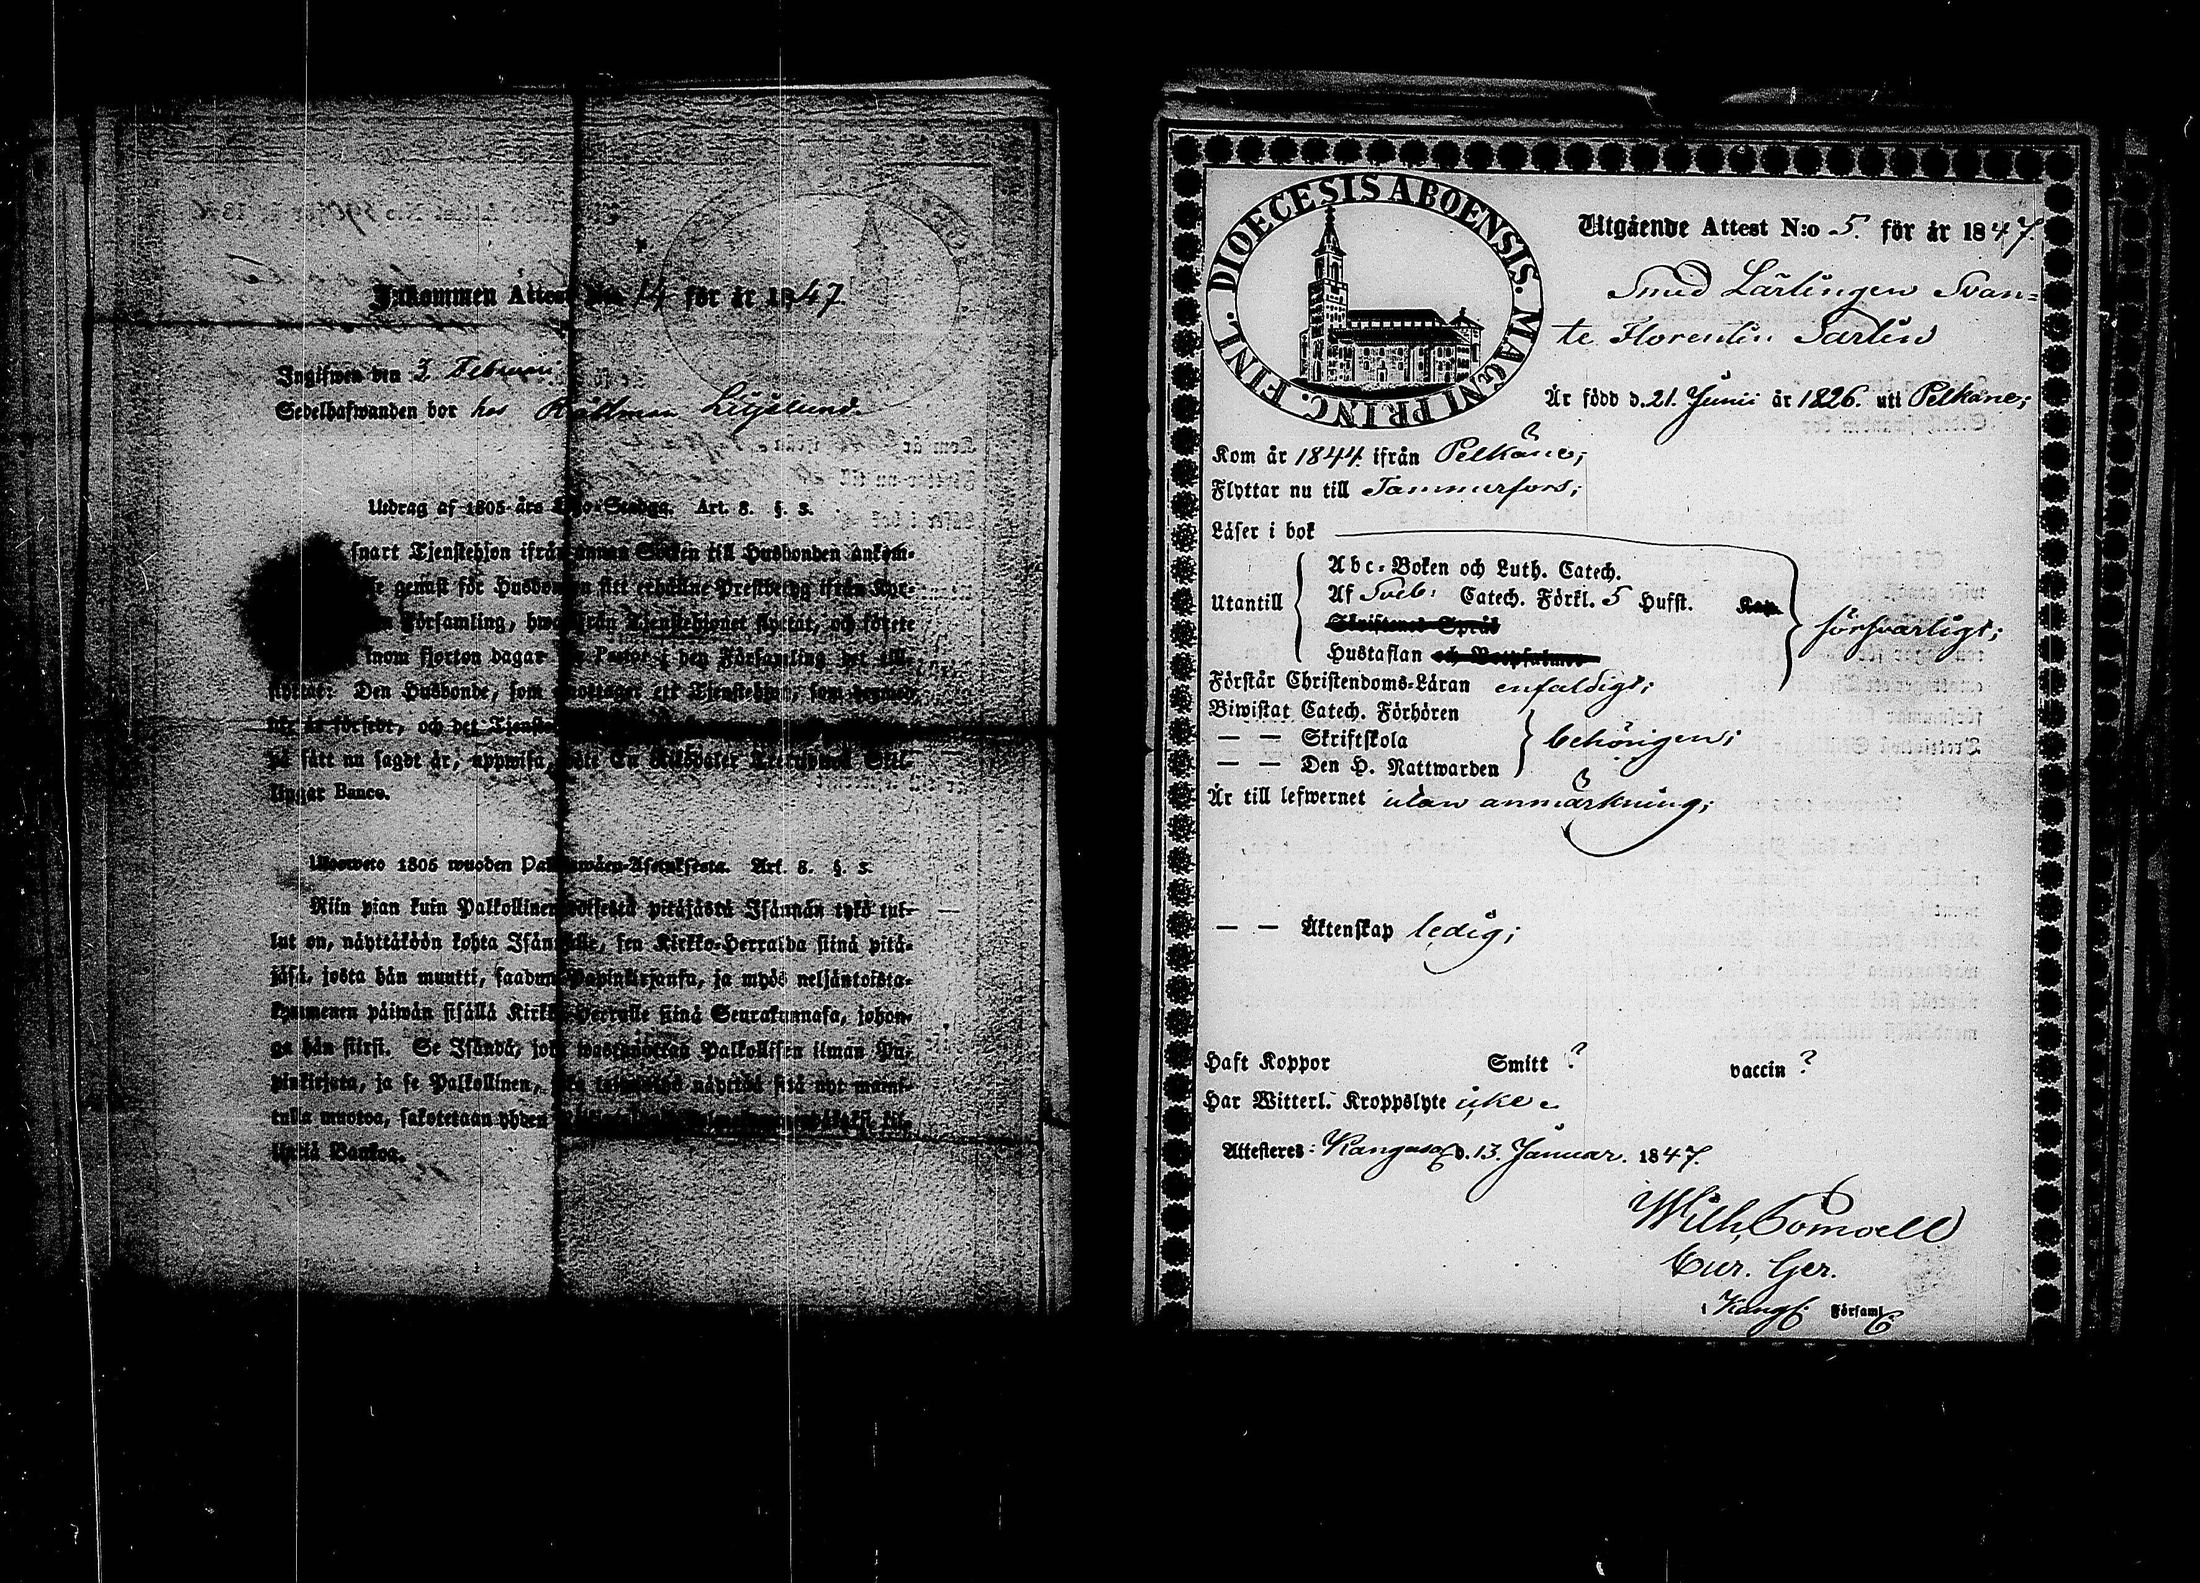 Inkommen Attest N:o 14 för år 1847
Ingifwen den 3 Februarii
Sedelhafwanden bor hos Rådman
Utdrag af 1805 års Lego-Stadga. Art. 8. §. 3.
snart Tjenstehjon ifrån annan Socken till Husbonden ankom-
genast för Husbonden sitt erhållne Prestbetyg ifrån Kyr-
Församling, hwarifrån Tjenstehjonet flyttat, och förete
inom fjorton dagar för Pastor i den Församling det till-
flyttat: Den Husbonde, som emottager ett Tjenstehjon, som
är försedt, och det Tjenste
på sätt nu sagdt är, uppwisa, böte En Riksdaler Skil-
lingar Banco.
Uloswete 1805 wuoden Palkkawäen-Asetuksesta. Art. 8. §. 3.
Niin pian kuin Palkollinen toisesta pitäjästä Isännän tykö tul-
lut on, näyttäköön kohta Isännälle, sen Kirkko-Herralda siinä pitä-
jäsä, josta hän muutti, saadun Papinkirjansa, ja myös neljäntoista-
kymmenen päiwän sisällä Kirkko-Herralle siinä Seurakunnasa, johon-
ga hän siirsi. Se Isändä, joka wastanottaa Palkollisen ilman Pa-
pinkirjata, ja se Palkollinen, näyttää sitä nyt mainit-
tulla muotoa, sakotetaan yhden
Bankoa.
FINL. DIOECESIS ABOENSIS. MAGNI PRINC.
Utgående Attest N:o 5. för år 1847.
Smed Lärlingen Svan=
te Florentin Sarlin
Är född d. 21. Junii år 1826. uti Pelkäne;
Kom år 1844. ifrån Pelkäne;
Flyttar nu till Tammerfors;
Läser i bok
Abc-Boken och Luth. Catech.
Utantill Af Sveb: Catech. Förkl. 5 Hufst. Kap. försvarligt;
Skriftenes Språk
Hustaflan och Botpsalmer
Förstår Christendoms-Läran enfaldigt;
Biwistat Catech. Förhören
— — Skriftskola behörigen;
— — Den H. Nattwarden
Är till lefwernet utan anmärkning;
— — Äktenskap ledig;
Haft Koppor Smitt ? vaccin ?
Har Witterl. Kroppslyte icke
Attesteres: Kangasa d. 13. Januar. 1847.
Wilh.
Cur. Ger.
i Kangs: Församl